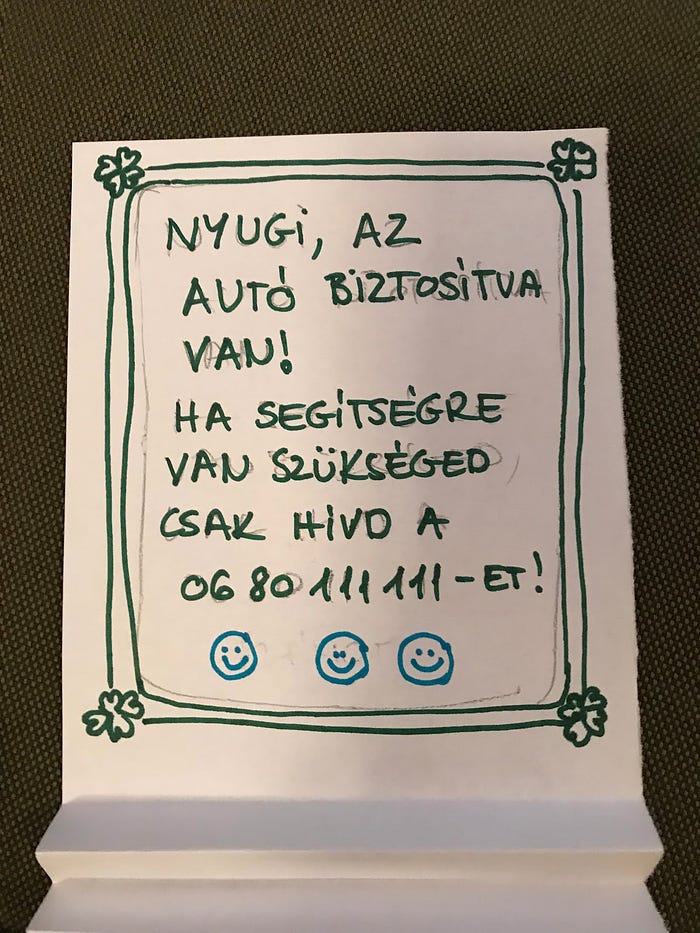 NYUGi, AZ
AUTÓ BiZTOSÍTVA
VAN!
HA SEGÍTSÉGRE
VAN SZÜKSÉGED
CSAK HÍVD A
06 80 111 111-ET!